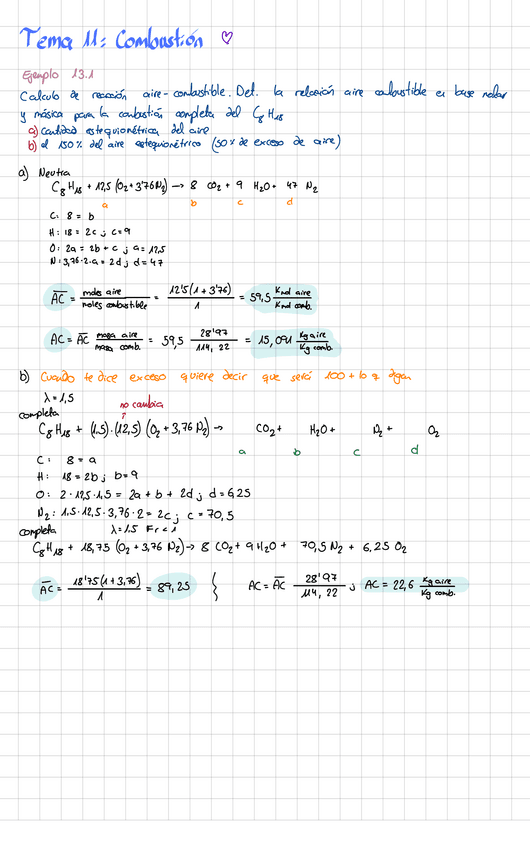 Tema 11: Combustión ♡
Ejemplo 13.1
Calculo de reacción aire-combustible. Det. la relación aire combustible en base molar
y másica para la combustión completa del C₈H₁₈
a) cantidad estequiométrica del aire
b) el 150% del aire estequiométrico (50% de exceso de aire)
a) Neutra
C₈H₁₈ + 12,5 (O₂ + 3'76 N₂) → 8 CO₂ + 9 H₂O + 47 N₂
a b c d
C: 8 = b
H: 18 = 2c ; c = 9
O: 2a = 2b + c ; a = 12,5
N: 3,76·2·a = 2d ; d = 47
AC = moles aire / moles combustible = 12'5 (1 + 3'76) / 1 = 59,5 Kmol aire / Kmol comb.
AC = AC masa aire / masa comb. = 59,5 28'97 / 114,22 = 15,091 Kg aire / Kg comb.
b) Cuando te dice exceso quiere decir que será 100 + lo q digan
λ = 1,5
completa no cambia
C₈H₁₈ + (1.5)·(12,5) (O₂ + 3,76 N₂) → CO₂ + H₂O + N₂ + O₂
a b c d
C: 8 = a
H: 18 = 2b ; b = 9
O: 2·12,5·1,5 = 2a + b + 2d ; d = 6,25
N₂: 1.5·12.5·3,76·2 = 2c ; c = 70,5
completa λ = 1.5 Fr < 1
C₈H₁₈ + 18,75 (O₂ + 3,76 N₂) → 8 CO₂ + 9 H₂O + 70,5 N₂ + 6,25 O₂
AC = 18'75 (1 + 3,76) / 1 = 89,25 } AC = AC 28'97 / 114,22 ; AC = 22,6 Kg aire / Kg comb.